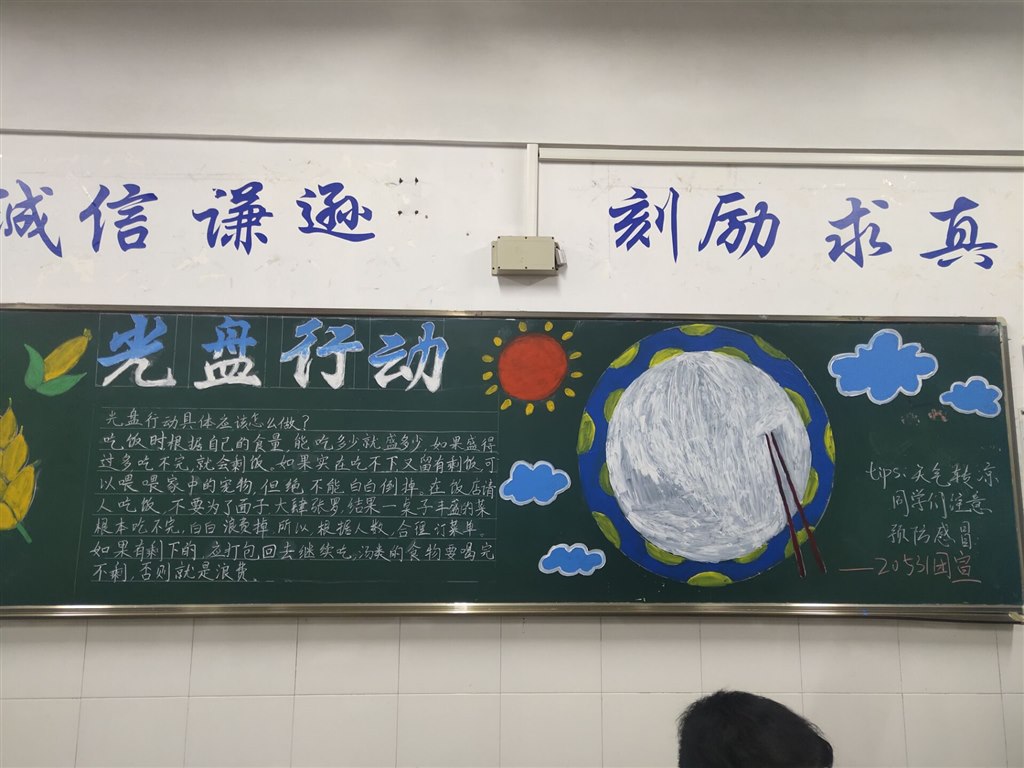 诚信谦逊 刻励求真
光盘行动
光盘行动具体应该怎么做?
吃饭时根据自己的食量,能吃多少就盛多少,如果盛得
过多吃不完,就会剩饭,如果实在吃不下又留有剩饭,可
以喂喂家中的宠物,但绝不能白白倒掉。在饭店请
人吃饭,不要为了面子大肆张罗,结果一桌子丰盛的菜
根本吃不完,白白浪费掉,所以根据人数,合理订菜单。
如果有剩下的,应打包回去继续吃,汤类的食物要喝完
不剩,否则就是浪费。
tips:天气转凉
同学们注意
预防感冒
——20531团宣